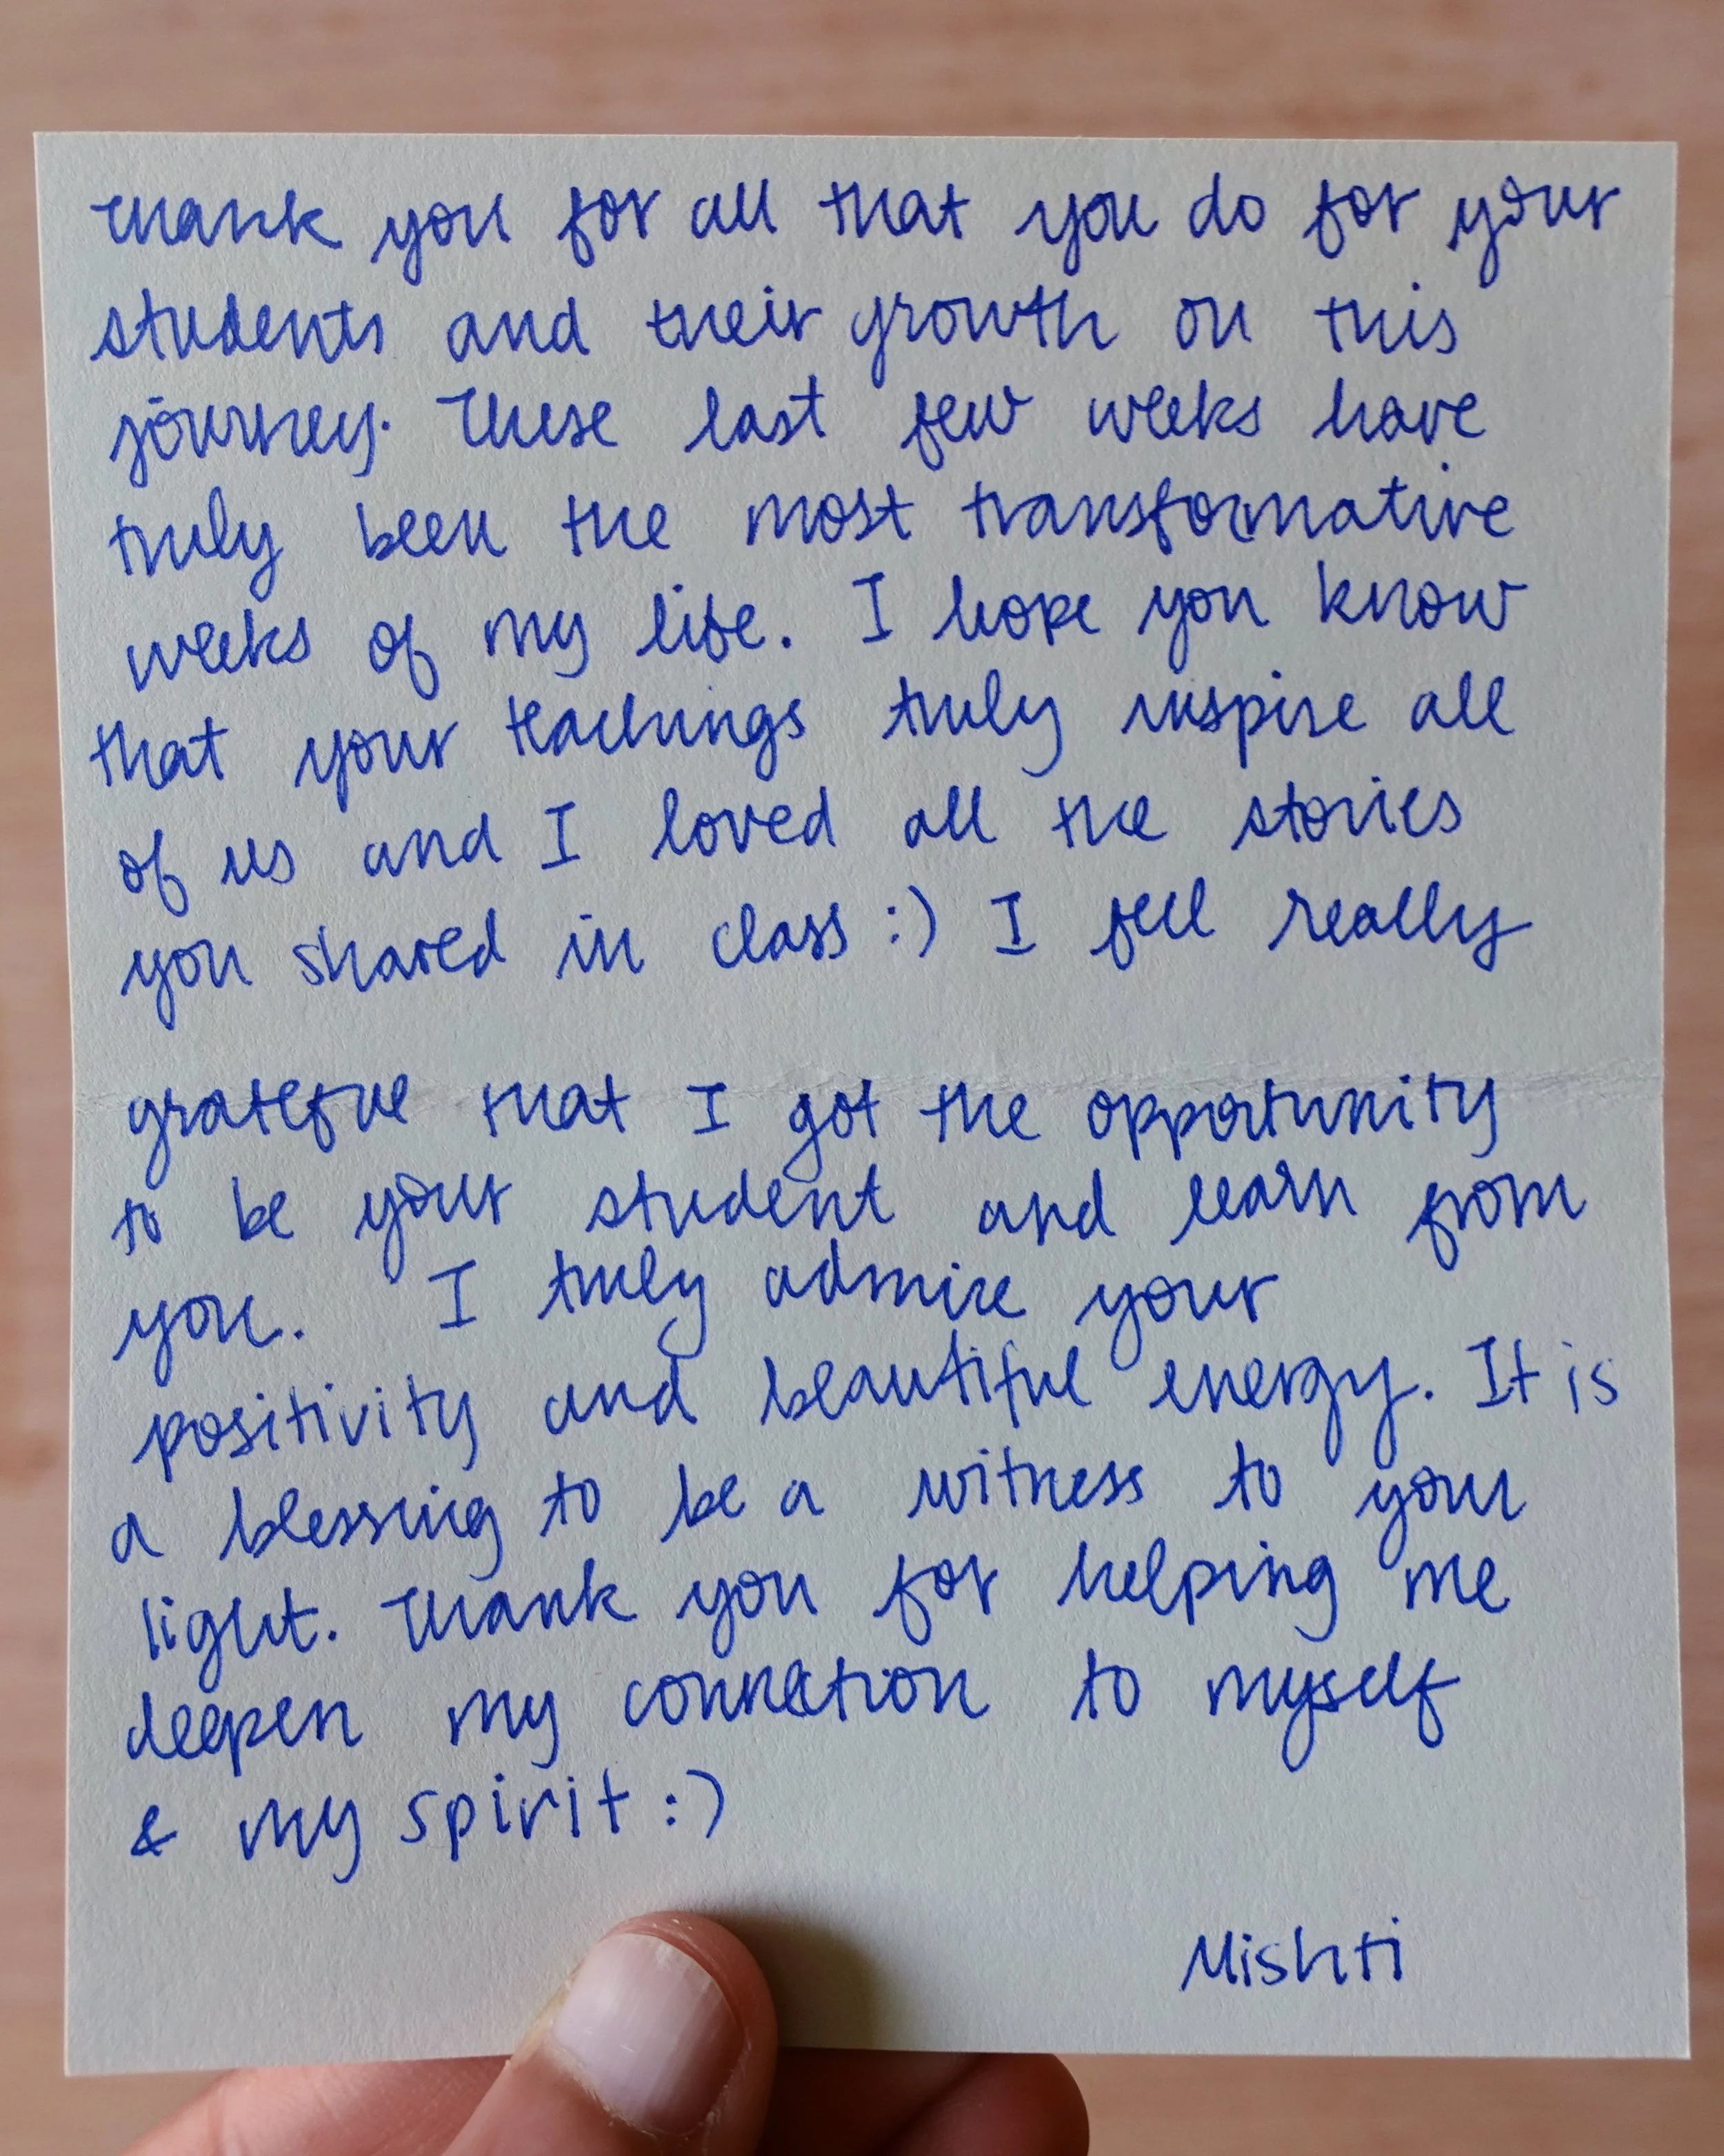 Thank you for all that you do for your
students and their growth on this
journey. These last few weeks have
truly been the most transformative
weeks of my life. I hope you know
that your teachings truly inspire all
of us and I loved all the stories
you shared in class :) I feel really
grateful that I got the opportunity
to be your student and learn from
you. I truly admire your
positivity and beautiful energy. It is
a blessing to be a witness to your
light. Thank you for helping me
deepen my connection to myself
& my spirit :)
Mishti